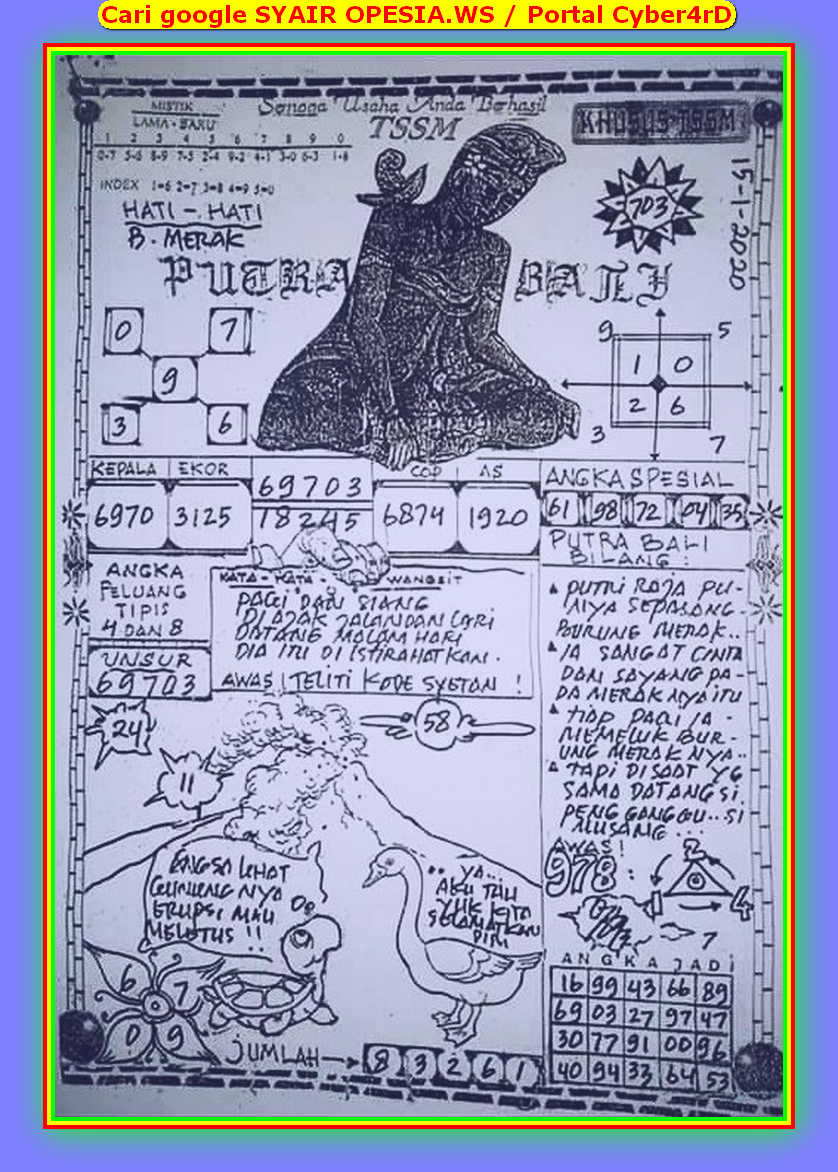 Cari google SYAIR OPESIA.WS / Portal Cyber4rD
Semoga Usaha Anda Berhasil
TSSM
KHUSUS-TSSM
MISTIK
LAMA - BARU
1 2 3 4 5 6 7 8 9 0
0-7 5-6 8-9 7-5 2-4 9-2 4-1 3-0 6-3 1-8
INDEX 1=6 2=7 3=8 4=9 5=0
HATI - HATI
B. MERAK
703
15-1-2020
PUTRA BALI
0 7
9
3 6
9 5
1 0
2 6
3 7
KEPALA EKOR
6970 3125
69703
18245
COP AS
6874 1920
ANGKA SPESIAL
61 98 72 04 35
PUTRA BALI
BILANG :
PUTRI RAJA PU-
NYA SEPASANG
BURUNG MERAK..
IA SANGAT CINTA
DAN SAYANG PA-
DA MERAKNYA ITU
TIAP PAGI IA -
MEMELUK BUR-
UNG MERAKNYA..
TAPI DI SAAT YG
SAMA DATANG SI
PENGGANGGU..SI
MUSANG...
AWAS!
978 : 2
6 4
7
ANGKA
PELUANG
TIPIS
4 DAN 8
UNSUR
69703
KATA - KATA - WANGSIT
PAGI DAN SIANG
DI AJAK JALAN DAN LARI
DATANG MALAM HARI
DIA ITU DI ISTIRAHATKAN.
AWAS! TELITI KODE SYETAN !
24
11
58
ANGSA LIHAT
GUNUNG NYA
ERUPSI MAU
MELETUS !!
.. YA...
AKU TAU
YUK KITA
SELAMATKAN
DIRI
6 7
0 9
JUMLAH
8 3 2 6 1
ANGKA JADI
16 99 43 66 89
69 03 27 97 47
30 77 91 00 96
40 94 33 64 53